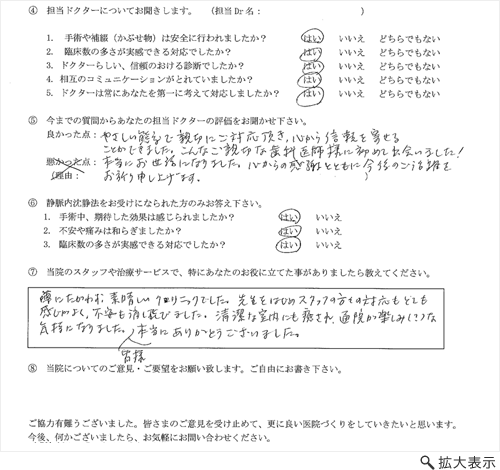 ④ 担当ドクターについてお聞きします。 (担当Dr名： )
1. 手術や補綴（かぶせ物）は安全に行われましたか？ はい いいえ どちらでもない
2. 臨床数の多さが実感できる対応でしたか？ はい いいえ どちらでもない
3. ドクターらしい、信頼のおける診断でしたか？ はい いいえ どちらでもない
4. 相互のコミュニケーションがとれていましたか？ はい いいえ どちらでもない
5. ドクターは常にあなたを第一に考えて対応しましたか？ はい いいえ どちらでもない
⑤ 今までの質問からあなたの担当ドクターの評価をお聞かせ下さい。
良かった点： やさしい態度で親切にご対応頂き、心から信頼を寄せる
ことができました。こんなご親切な歯科医師様に初めて出会いました！
悪かった点： 本当にお世話になりました。心からの感謝とともに今後のご活躍を
（理由： お祈り申し上げます。
⑥ 静脈内沈静法をお受けになられた方のみお答え下さい。
1. 手術中、期待した効果は感じられましたか？ はい いいえ
2. 不安や痛みは和らぎましたか？ はい いいえ
3. 臨床数の多さが実感できる対応でしたか？ はい いいえ
⑦ 当院のスタッフや治療サービスで、特にあなたのお役に立てた事がありましたら教えてください。
噂にたがわず 素晴しいクリニックでした。先生をはじめスタッフの方々の対応もとても
感じがよく、不安も消し飛びました。清潔な室内にも癒され、通院が楽しみ(?)な
気持になりました。本当にありがとうございました。
皆様
⑧ 当院についてのご意見・ご要望をお願い致します。ご自由にお書き下さい。
ご協力有難うございました。皆さまのご意見を受け止めて、更に良い医院づくりをしていきたいと思います。
今後、何かございましたら、お気軽にお問い合わせください。
拡大表示